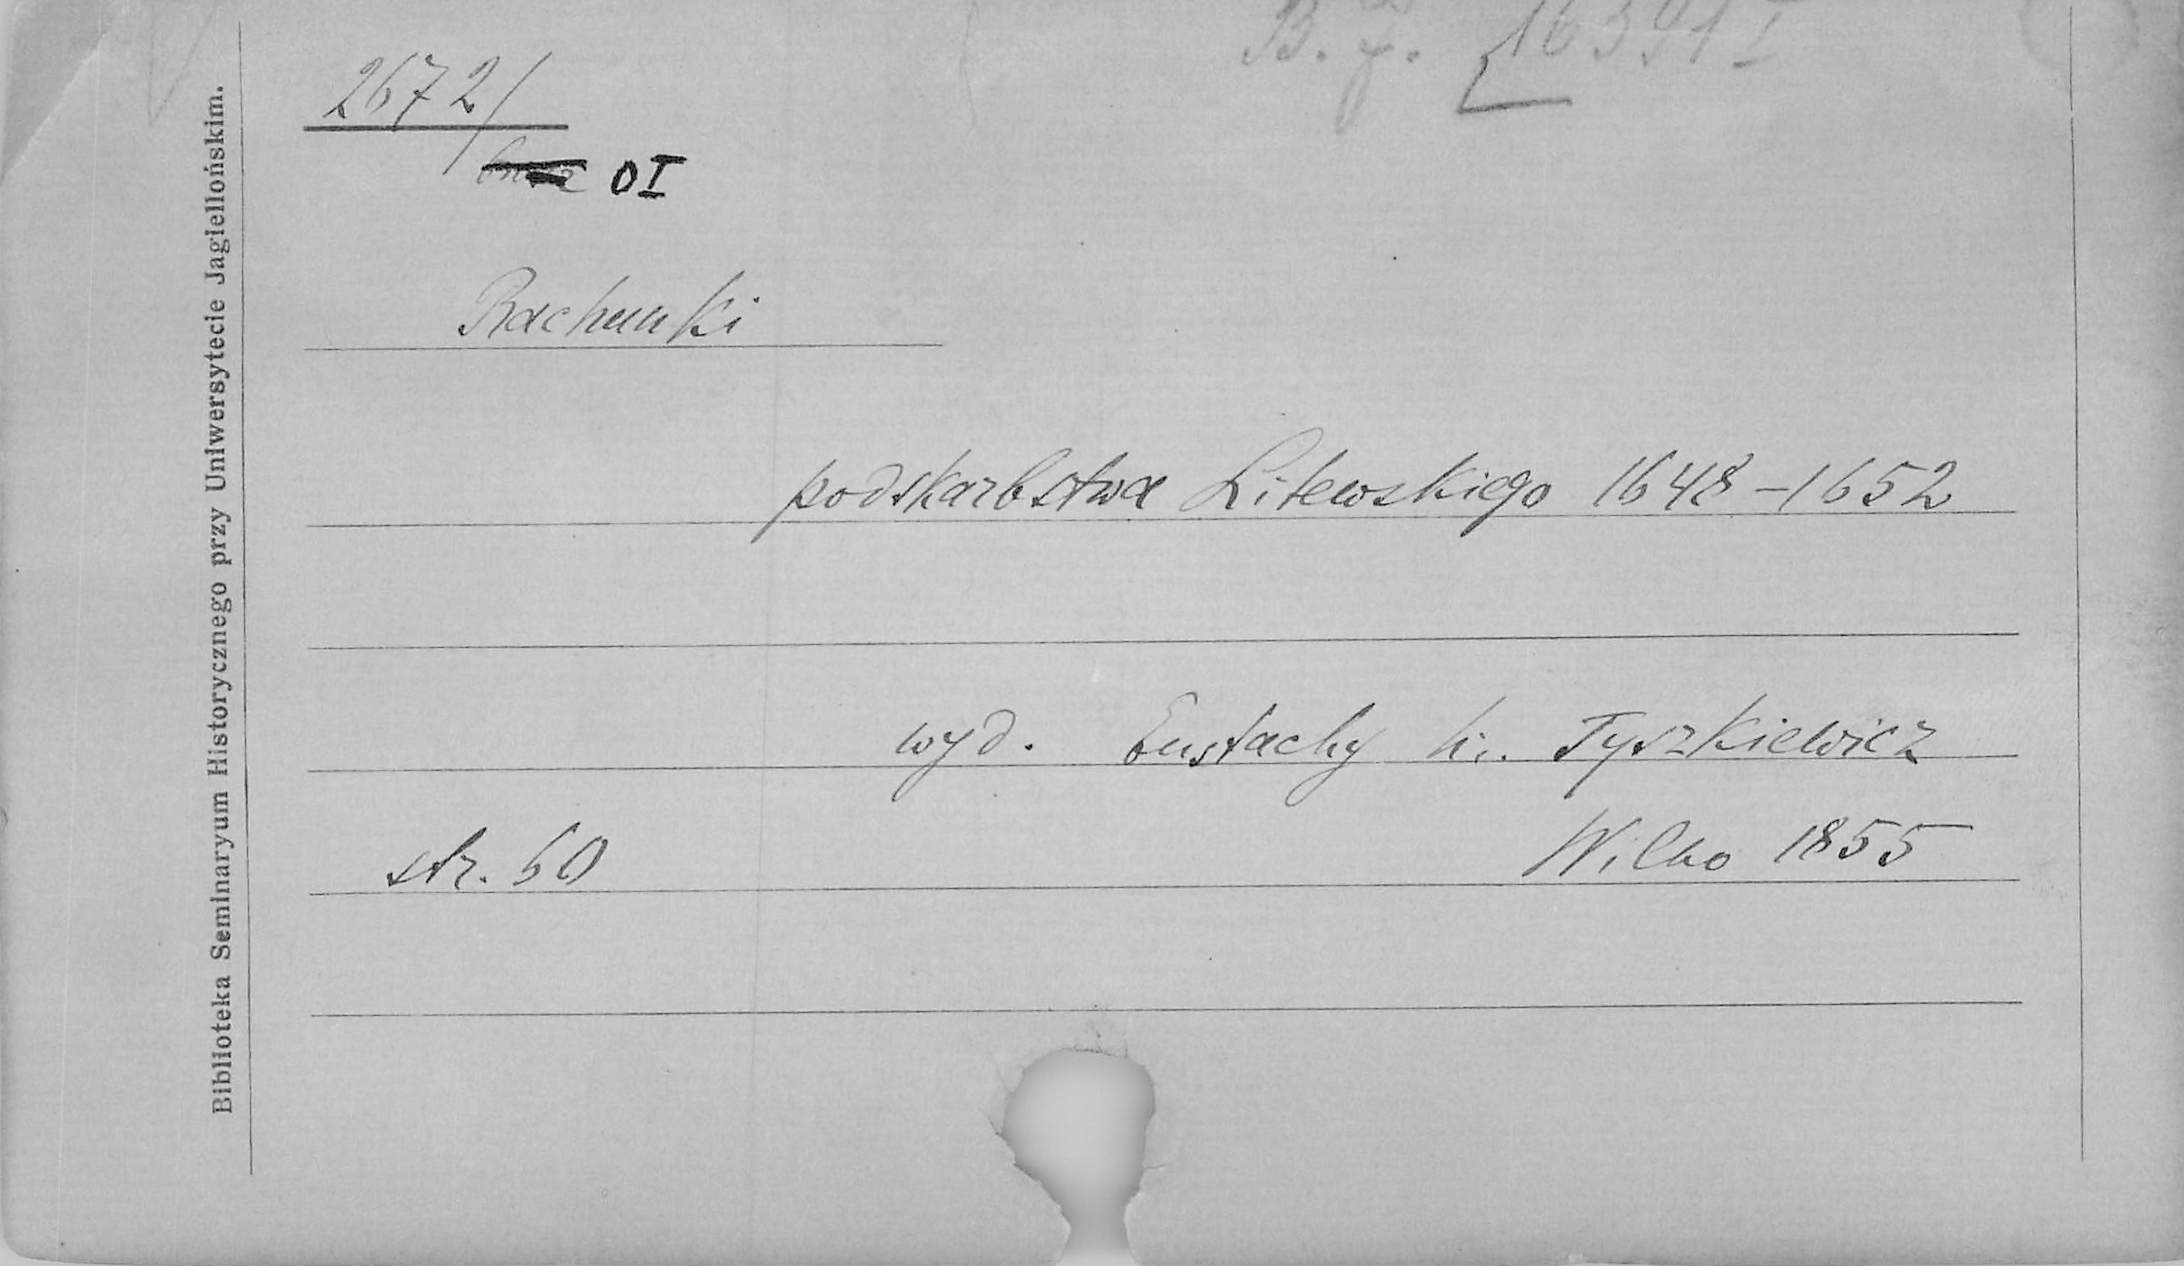 B. J. 16391 I
2672/
OI
Rachunki
podskarbstwa Litewskiego 1648-1652
wyd. Eustachy hr. Tyszkiewicz
str. 60 Wilno 1855
Biblioteka Seminaryum Historycznego przy Uniwersytecie Jagiellońskim.